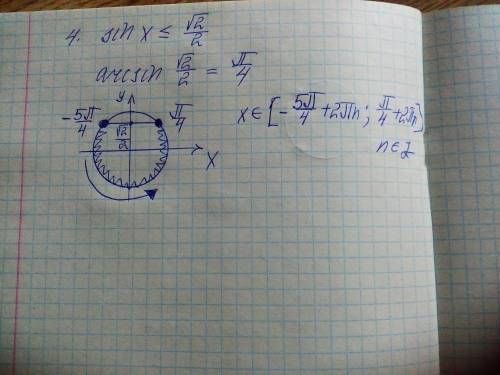 4. sin x ≤ √2/2
arcsin √2/2 = π/4
y
-5π/4 π/4
√2/2
X
x ∈ [-5π/4 + 2πn; π/4 + 2πn]
n ∈ Z